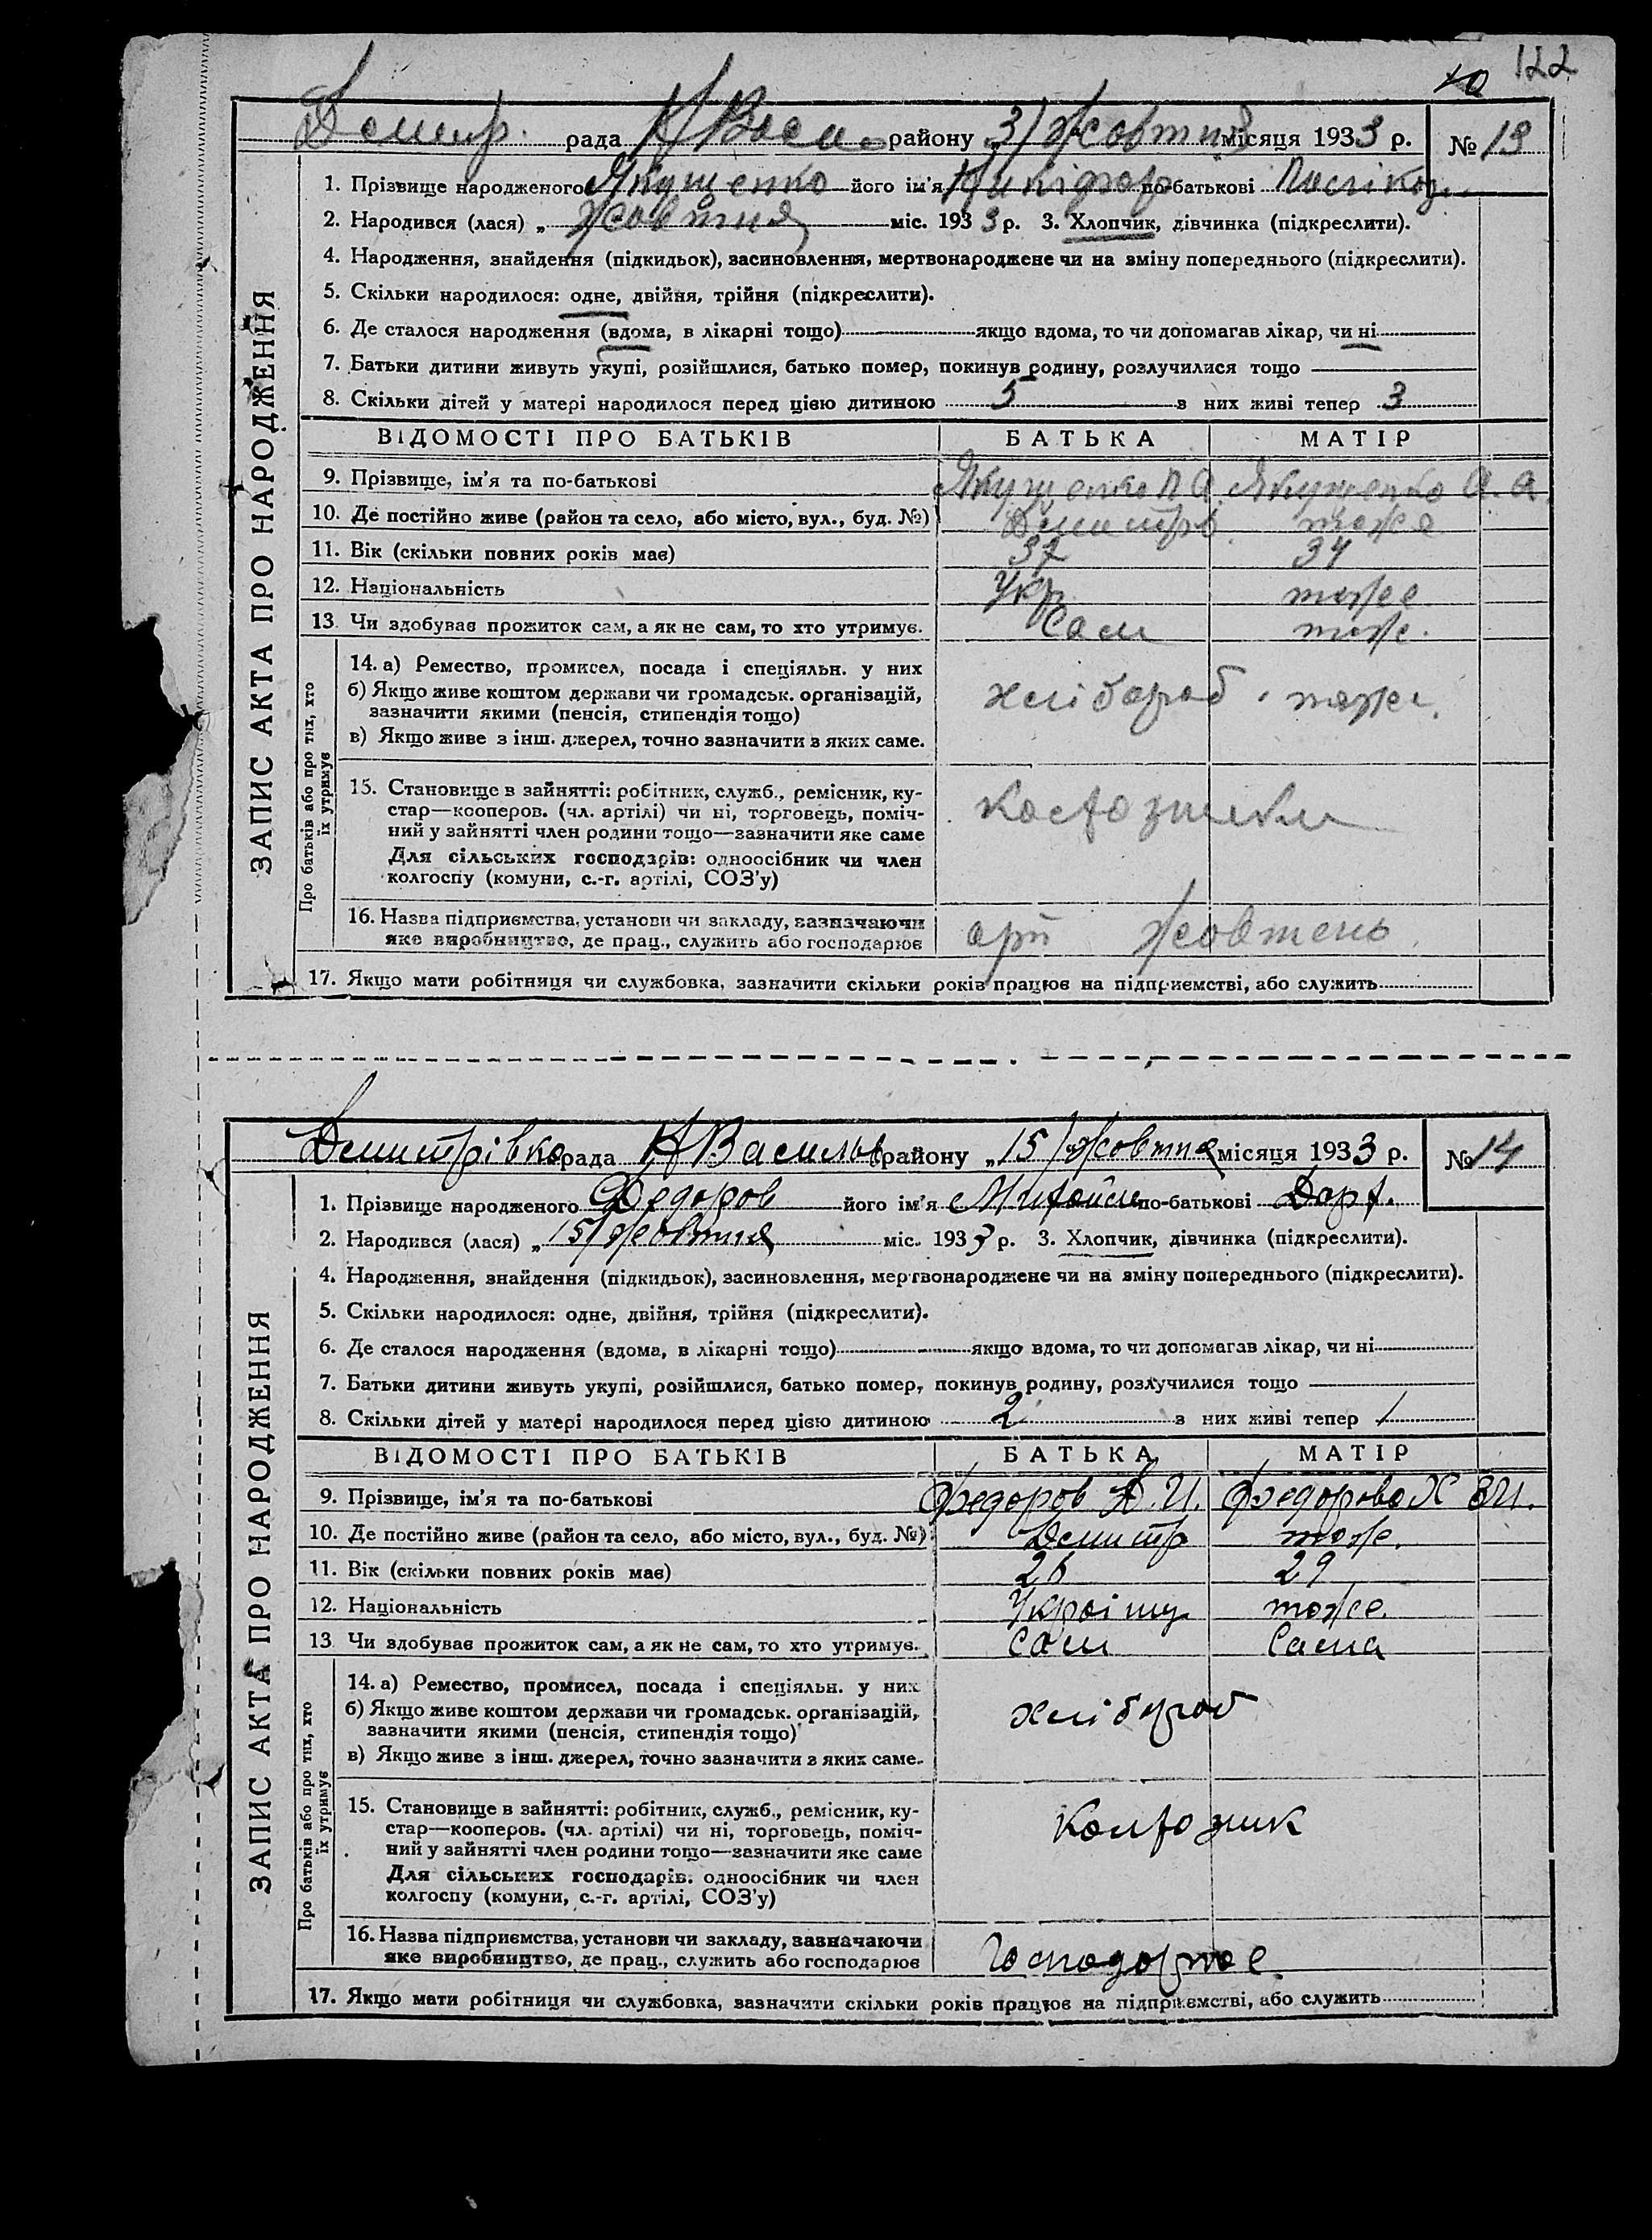 122
Демитр. рада К Васи району „3/ Жовтня місяця 1933 р. № 13
ЗАПИС АКТА ПРО НАРОДЖЕННЯ
1. Прізвище народженого Якушенко його ім'я Никіфор по-батькові
2. Народився (лася) „ Жовтня міс. 1933 р. 3. Хлопчик, дівчинка (підкреслити).
4. Народження, знайдення (підкидьок), засиновлення, мертвонароджене чи на зміну попереднього (підкреслити).
5. Скільки народилося: одне, двійня, трійня (підкреслити).
6. Де сталося народження (вдома, в лікарні тощо) якщо вдома, то чи допомагав лікар, чи ні
7. Батьки дитини живуть укупі, розійшлися, батько помер, покинув родину, розлучилися тощо
8. Скільки дітей у матері народилося перед цією дитиною 5 з них живі тепер 3
ВІДОМОСТІ ПРО БАТЬКІВ БАТЬКА МАТІР
9. Прізвище, ім'я та по-батькові Якушенко П А. Якушенко А. А.
10. Де постійно живе (район та село, або місто, вул., буд. №) Демитрв. тоже
11. Вік (скільки повних років має) 37 34
12. Національність Укр тоже
13. Чи здобуває прожиток сам, а як не сам, то хто утримує. Сам тоже.
Про батьків або про тих, хто
їх утримує
14. а) Ремество, промисел, посада і спеціяльн. у них
б) Якщо живе коштом держави чи громадськ. організацій,
зазначити якими (пенсія, стипендія тощо)
хлібороб. тоже.
в) Якщо живе з інш. джерел, точно зазначити з яких саме.
15. Становище в зайнятті: робітник, служб., ремісник, ку-
стар—кооперов. (чл. артілі) чи ні, торговець, поміч-
ний у зайнятті член родини тощо—зазначити яке саме
Для сільських господарів: одноосібник чи член
колгоспу (комуни, с.-г. артілі, СОЗ'у)
16. Назва підприємства, установи чи закладу, зазначаючи
яке виробництво, де прац., служить або господарює
арт Жовтень
17. Якщо мати робітниця чи службовка, зазначити скільки років працює на підприємстві, або служить
Демитрівко рада К Васильв району „15/ Жовтня місяця 1933 р. № 14
ЗАПИС АКТА ПРО НАРОДЖЕННЯ
1. Прізвище народженого Федоров його ім'я Михайло по-батькові Дорф.
2. Народився (лася) „15/ Жовтня міс. 1933 р. 3. Хлопчик, дівчинка (підкреслити).
4. Народження, знайдення (підкидьок), засиновлення, мертвонароджене чи на зміну попереднього (підкреслити).
5. Скільки народилося: одне, двійня, трійня (підкреслити).
6. Де сталося народження (вдома, в лікарні тощо) якщо вдома, то чи допомагав лікар, чи ні
7. Батьки дитини живуть укупі, розійшлися, батько помер, покинув родину, розлучилися тощо
8. Скільки дітей у матері народилося перед цією дитиною 2 з них живі тепер 1
ВІДОМОСТІ ПРО БАТЬКІВ БАТЬКА МАТІР
9. Прізвище, ім'я та по-батькові Федоров Д. И. Федорова Х
10. Де постійно живе (район та село, або місто, вул., буд. №) Демитр тоже.
11. Вік (скільки повних років має) 26 29
12. Національність Україиц тоже.
13. Чи здобуває прожиток сам, а як не сам, то хто утримує. Сам Сама
Про батьків або про тих, хто
їх утримує
14. а) Ремество, промисел, посада і спеціяльн. у них
б) Якщо живе коштом держави чи громадськ. організацій,
зазначити якими (пенсія, стипендія тощо)
хлібороб
в) Якщо живе з інш. джерел, точно зазначити з яких саме.
15. Становище в зайнятті: робітник, служб., ремісник, ку-
стар—кооперов. (чл. артілі) чи ні, торговець, поміч-
ний у зайнятті член родини тощо—зазначити яке саме
Колхозник
Для сільських господарів: одноосібник чи член
колгоспу (комуни, с.-г. артілі, СОЗ'у)
16. Назва підприємства, установи чи закладу, зазначаючи
яке виробництво, де прац., служить або господарює
Господорює
17. Якщо мати робітниця чи службовка, зазначити скільки років працює на підприємстві, або служить